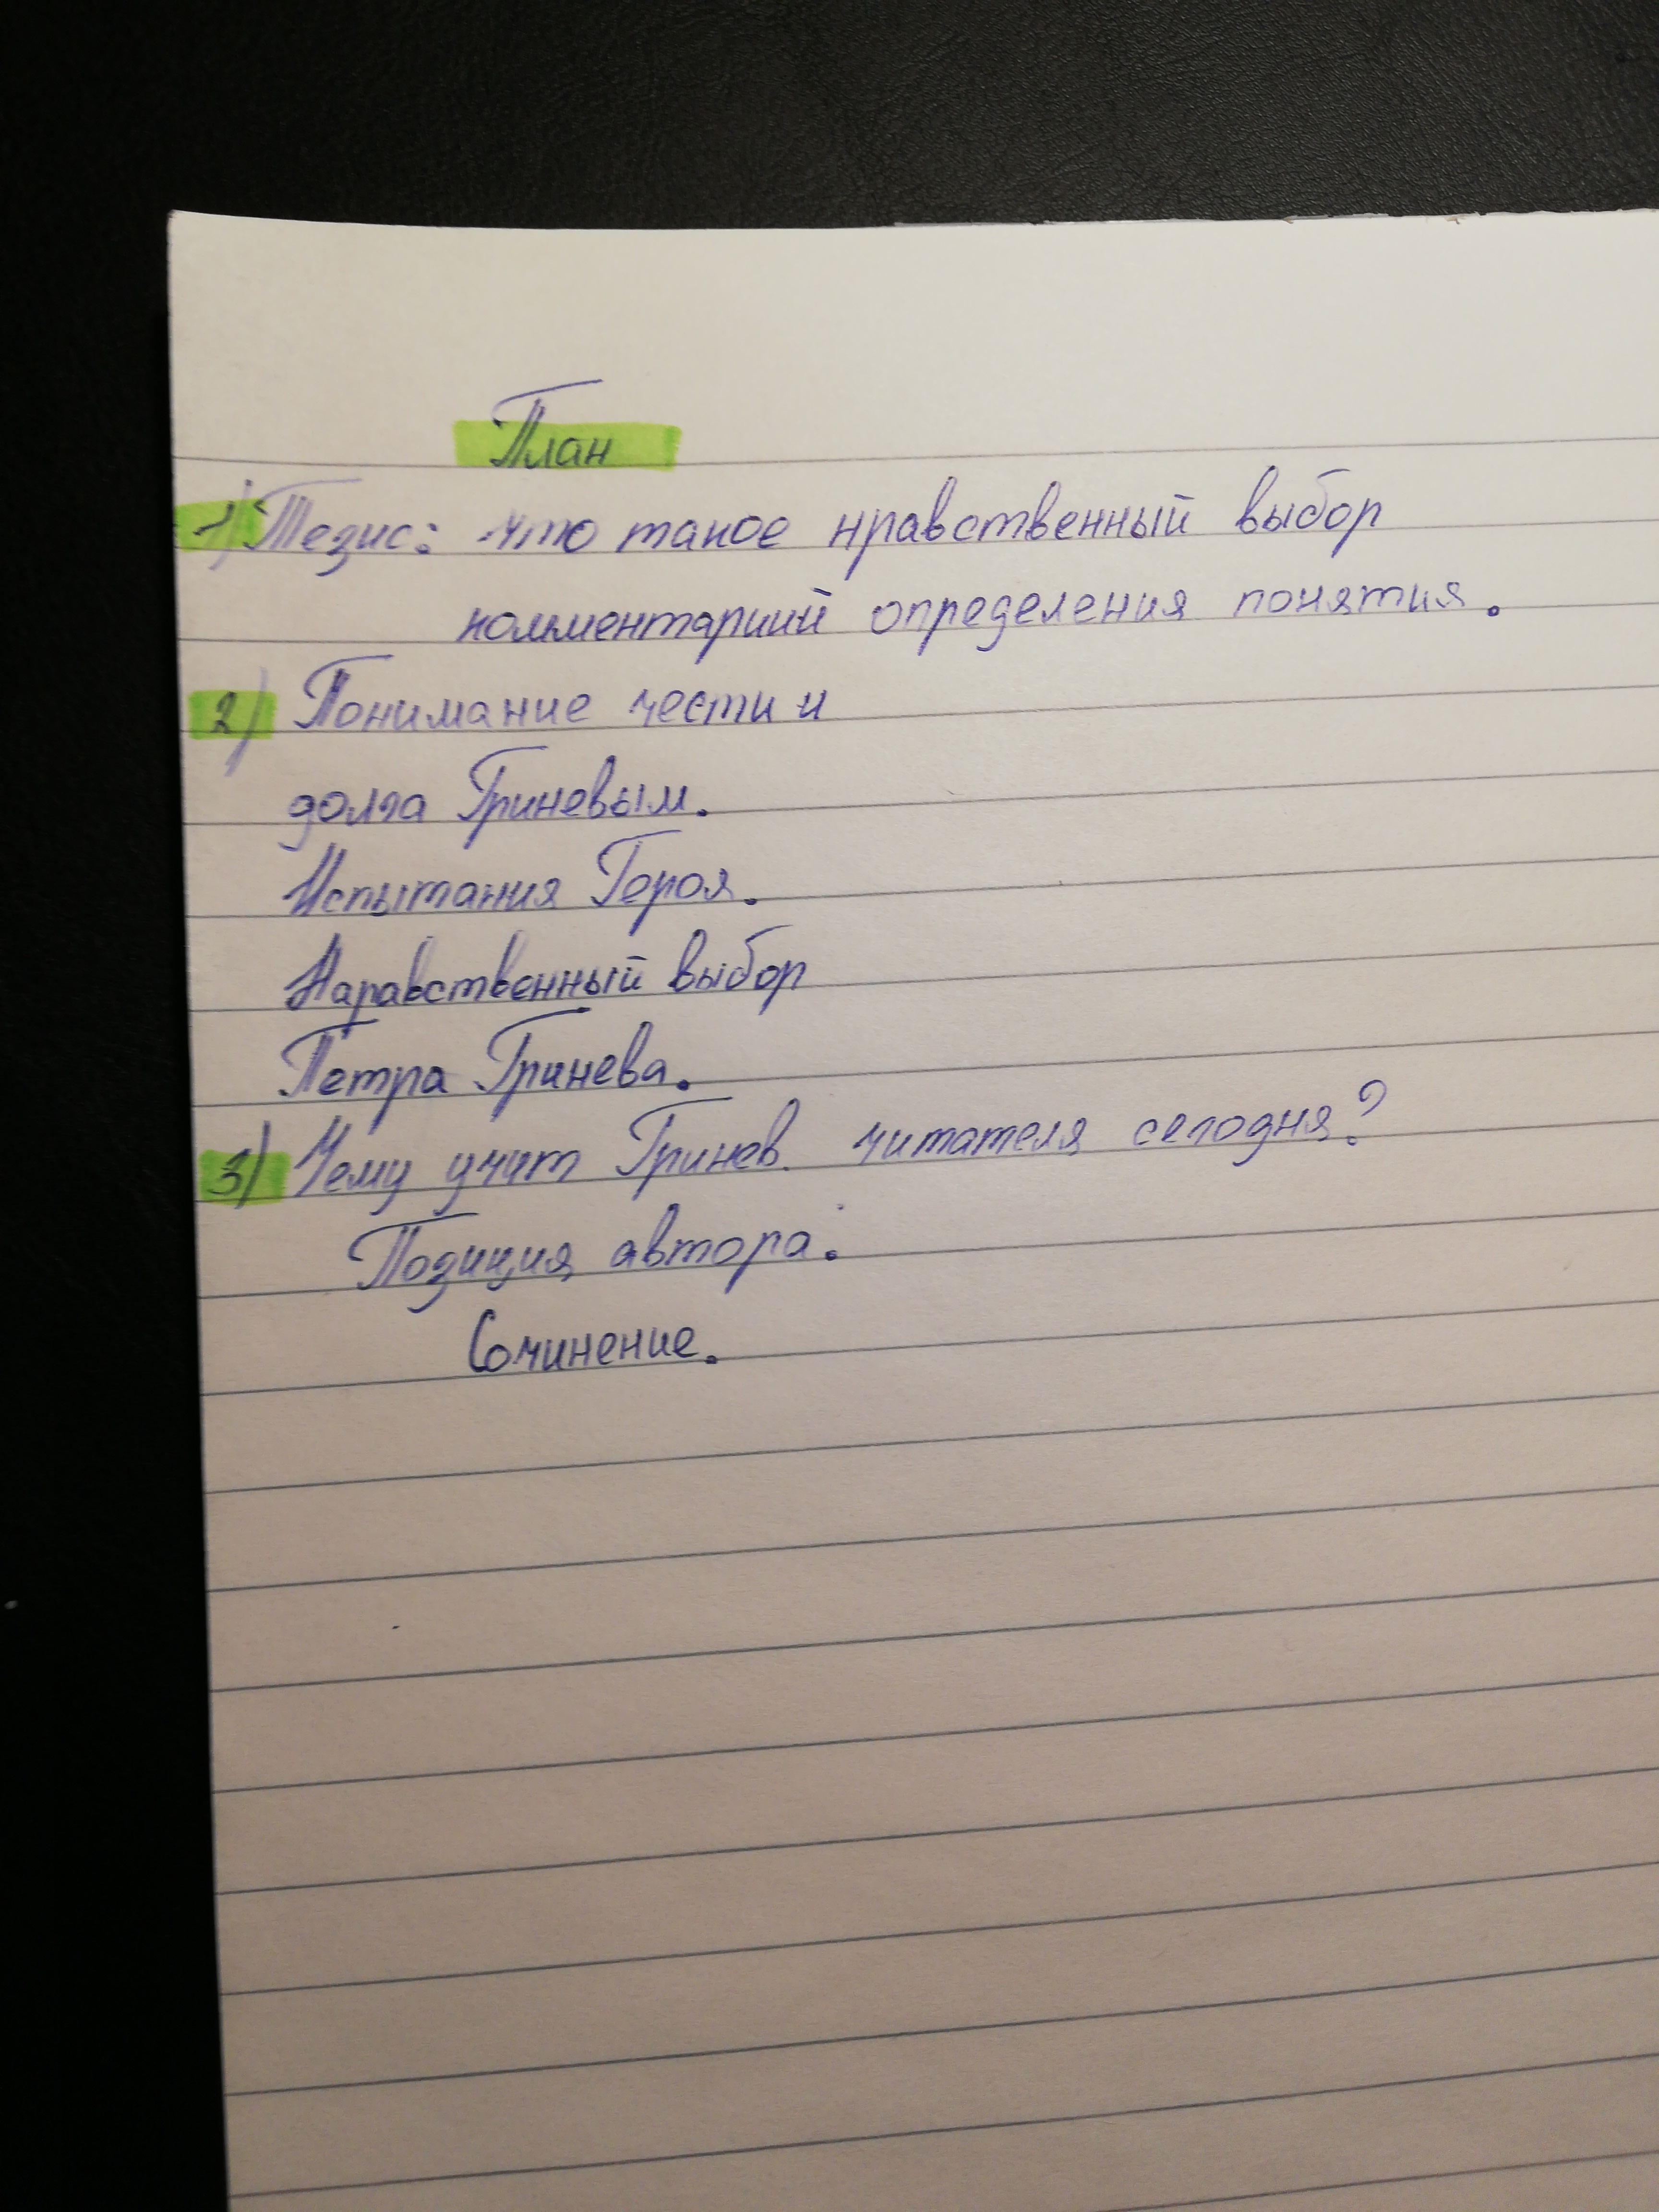 План
1) Тезис: что такое нравственный выбор
комментарций определения понятия.
2) Понимание чести и
долга Гриневым.
Испытания Героя.
Наравственный выбор
Петра Гринева.
3) Чему учит Гринев читателя сегодня?
Позиция автора:
Сочинение.